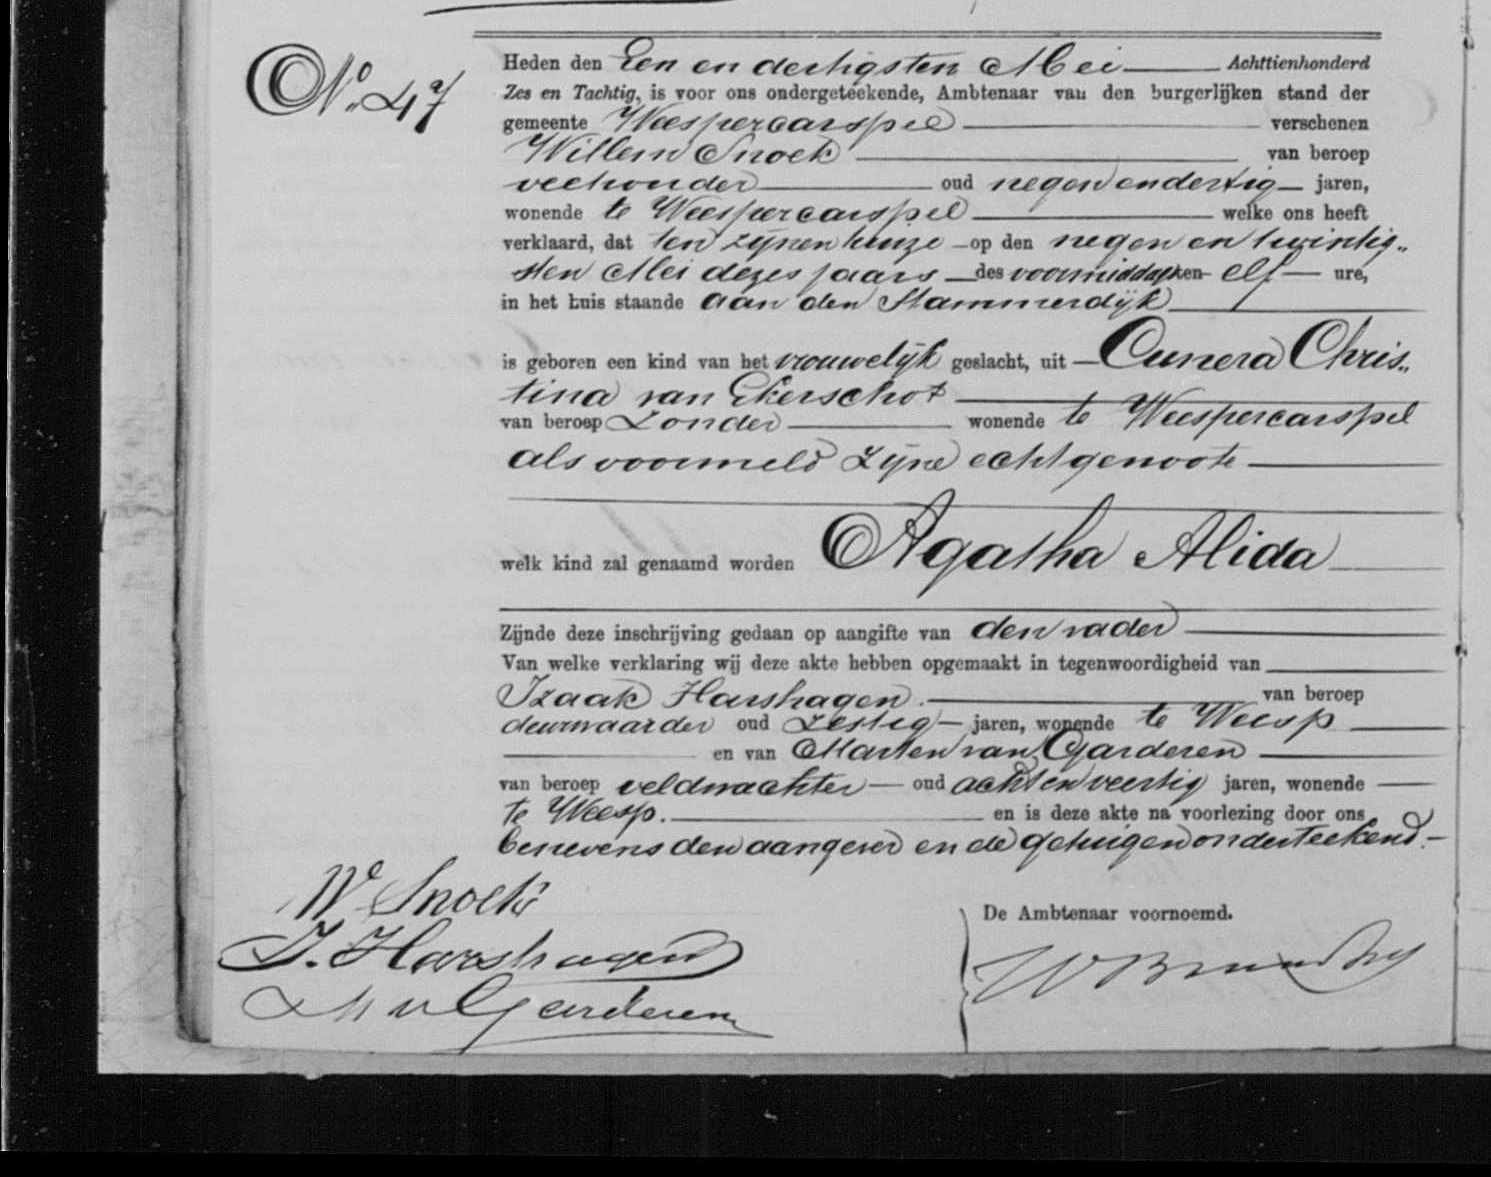 No. 47
Heden den Een en dertigsten Mei Achttienhonderd
Zes en Tachtig, is voor ons ondergeteekende, Ambtenaar van den burgerlijken stand der
gemeente Weespercarspel verschenen
Willem Snoek van beroep
veehouder oud negen en dertig jaren,
wonende te Weespercarspel welke ons heeft
verklaard, dat ten zijnen huize op den negen en twintig„
sten Mei dezes jaars des voormiddags ten elf ure,
in het huis staande aan den Stammerdijk
is geboren een kind van het vrouwelijk geslacht, uit Cunera Chris„
tina van Ekerschot
van beroep Zonder wonende te Weespercarspel
als voormeld zijne echtgenoote
welk kind zal genaamd worden Agatha Alida
Zijnde deze inschrijving gedaan op aangifte van den vader
Van welke verklaring wij deze akte hebben opgemaakt in tegenwoordigheid van
Izaak Harshagen van beroep
deurwaarder oud zestig jaren, wonende te Weesp
en van Marten van Garderen
van beroep veldwachter oud acht en veertig jaren, wonende
te Weesp. en is deze akte na voorlezing door ons
benevens den aangever en de getuigen onderteekend.
W Snoek
De Ambtenaar voornoemd.
I. Harshagen
M v Garderen